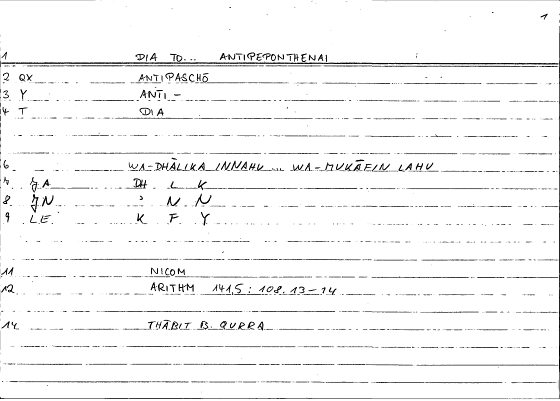 1
1 DIA TO... ANTIPEPONTHENAI
2 QX ANTIPASCHŌ
3 Y ANTI-
4 T DIA
6 WA-DHĀLIKA INNAHU .. WA-MUKĀFIN LAHU
7 JA DH L K
8 JN ' N N
9 LE K F Y
11 NICOM
12 ARITHM 141,5 : 108.13-14
14 THĀBIT B. QURRA